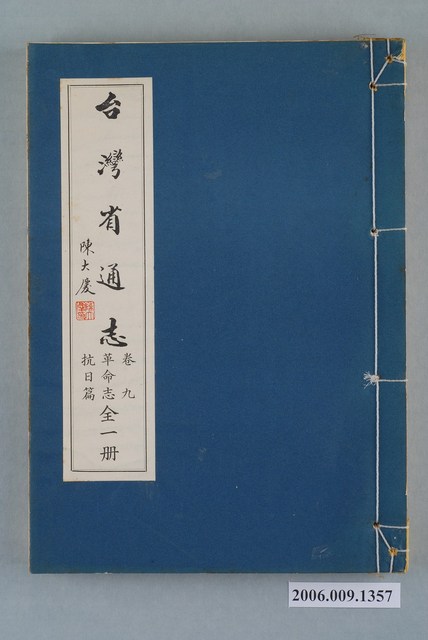 台灣省通志
陳大慶
卷九
革命志
抗日篇
全一册
2006.009.1357